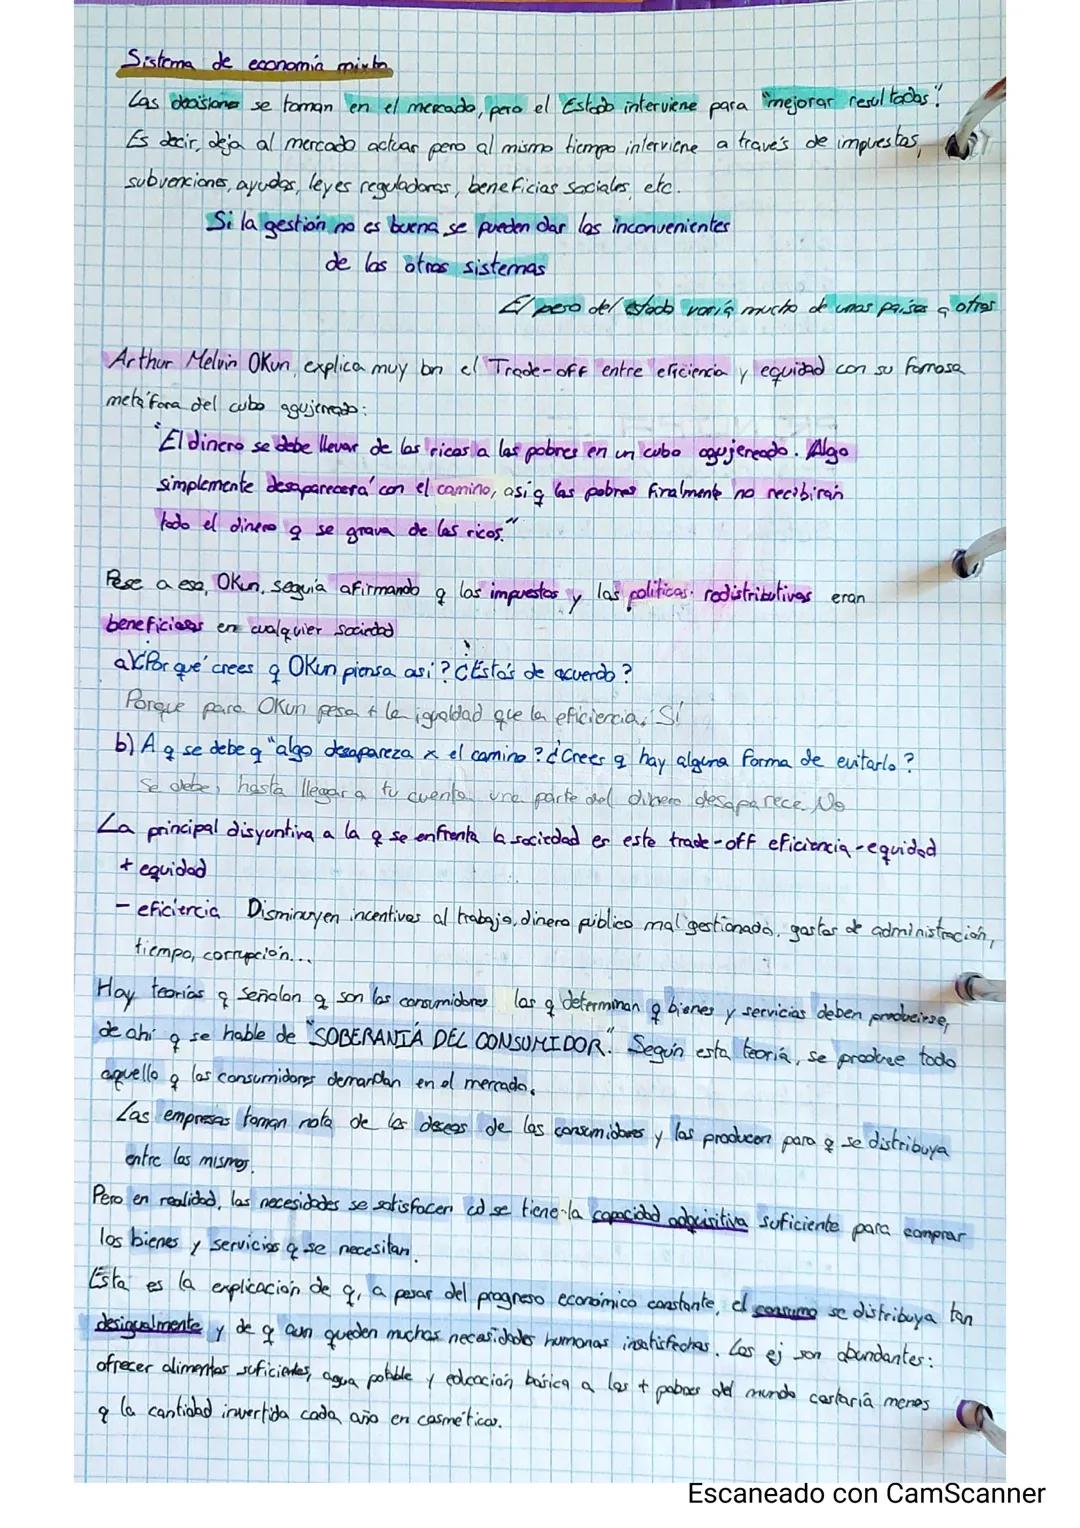 Sistema de economía mixta
Las decisiones se toman en el mercado, pero el Estado interviene para "mejorar resultados".
Es decir, deja al mercado actuar pero al mismo tiempo interviene a través de impuestos,
subvenciones, ayudas, leyes reguladoras, beneficios sociales, etc.
Si la gestión no es buena se pueden dar los inconvenientes
de los otros sistemas
El peso del estado varía mucho de unos países a otros
Arthur Melvin Okun, explica muy bn el Trade-off entre eficiencia y equidad con su famosa
metáfora del cubo agujereado:
"El dinero se debe llevar de los ricos a los pobres en un cubo agujereado. Algo
simplemente desaparecerá con el camino, así q los pobres finalmente no recibirán
todo el dinero q se grava de los ricos."
Pese a eso, Okun, seguía afirmando q los impuestos y las políticas redistributivas eran
beneficiosas en cualquier sociedad
a) ¿Por qué crees q Okun piensa así? ¿Estás de acuerdo?
Porque para Okun pesa + la igualdad que la eficiencia, Sí
b) A q se debe q "algo desapareza x el camino? ¿Crees q hay alguna forma de evitarlo?
Se debe, hasta llegar a tu cuenta una parte del dinero desaparece, No
La principal disyuntiva a la q se enfrenta la sociedad es este trade-off eficiencia-equidad
+ equidad
- eficiencia Disminuyen incentivos al trabajo, dinero público mal gestionado, gastos de administración,
tiempo, corrupción...
Hay teorías q señalan q son los consumidores los q determinan q bienes y servicios deben producirse,
de ahí q se hable de "SOBERANÍA DEL CONSUMIDOR". Según esta teoría, se produce todo
aquello q los consumidores demandan en el mercado.
Las empresas toman nota de los deseos de los consumidores y los producen para q se distribuya
entre los mismos.
Pero en realidad, las necesidades se satisfacen cd se tiene la capacidad adquisitiva suficiente para comprar
los bienes y servicios q se necesitan.
Esta es la explicación de q, a pesar del progreso económico constante, el consumo se distribuya tan
desigualmente y de q aun queden muchas necesidades humanas insatisfechas. Los ej son abundantes:
ofrecer alimentos suficientes, agua potable y educación básica a los + pobres del mundo costaría menos
q la cantidad invertida cada año en cosméticos.
Escaneado con CamScanner